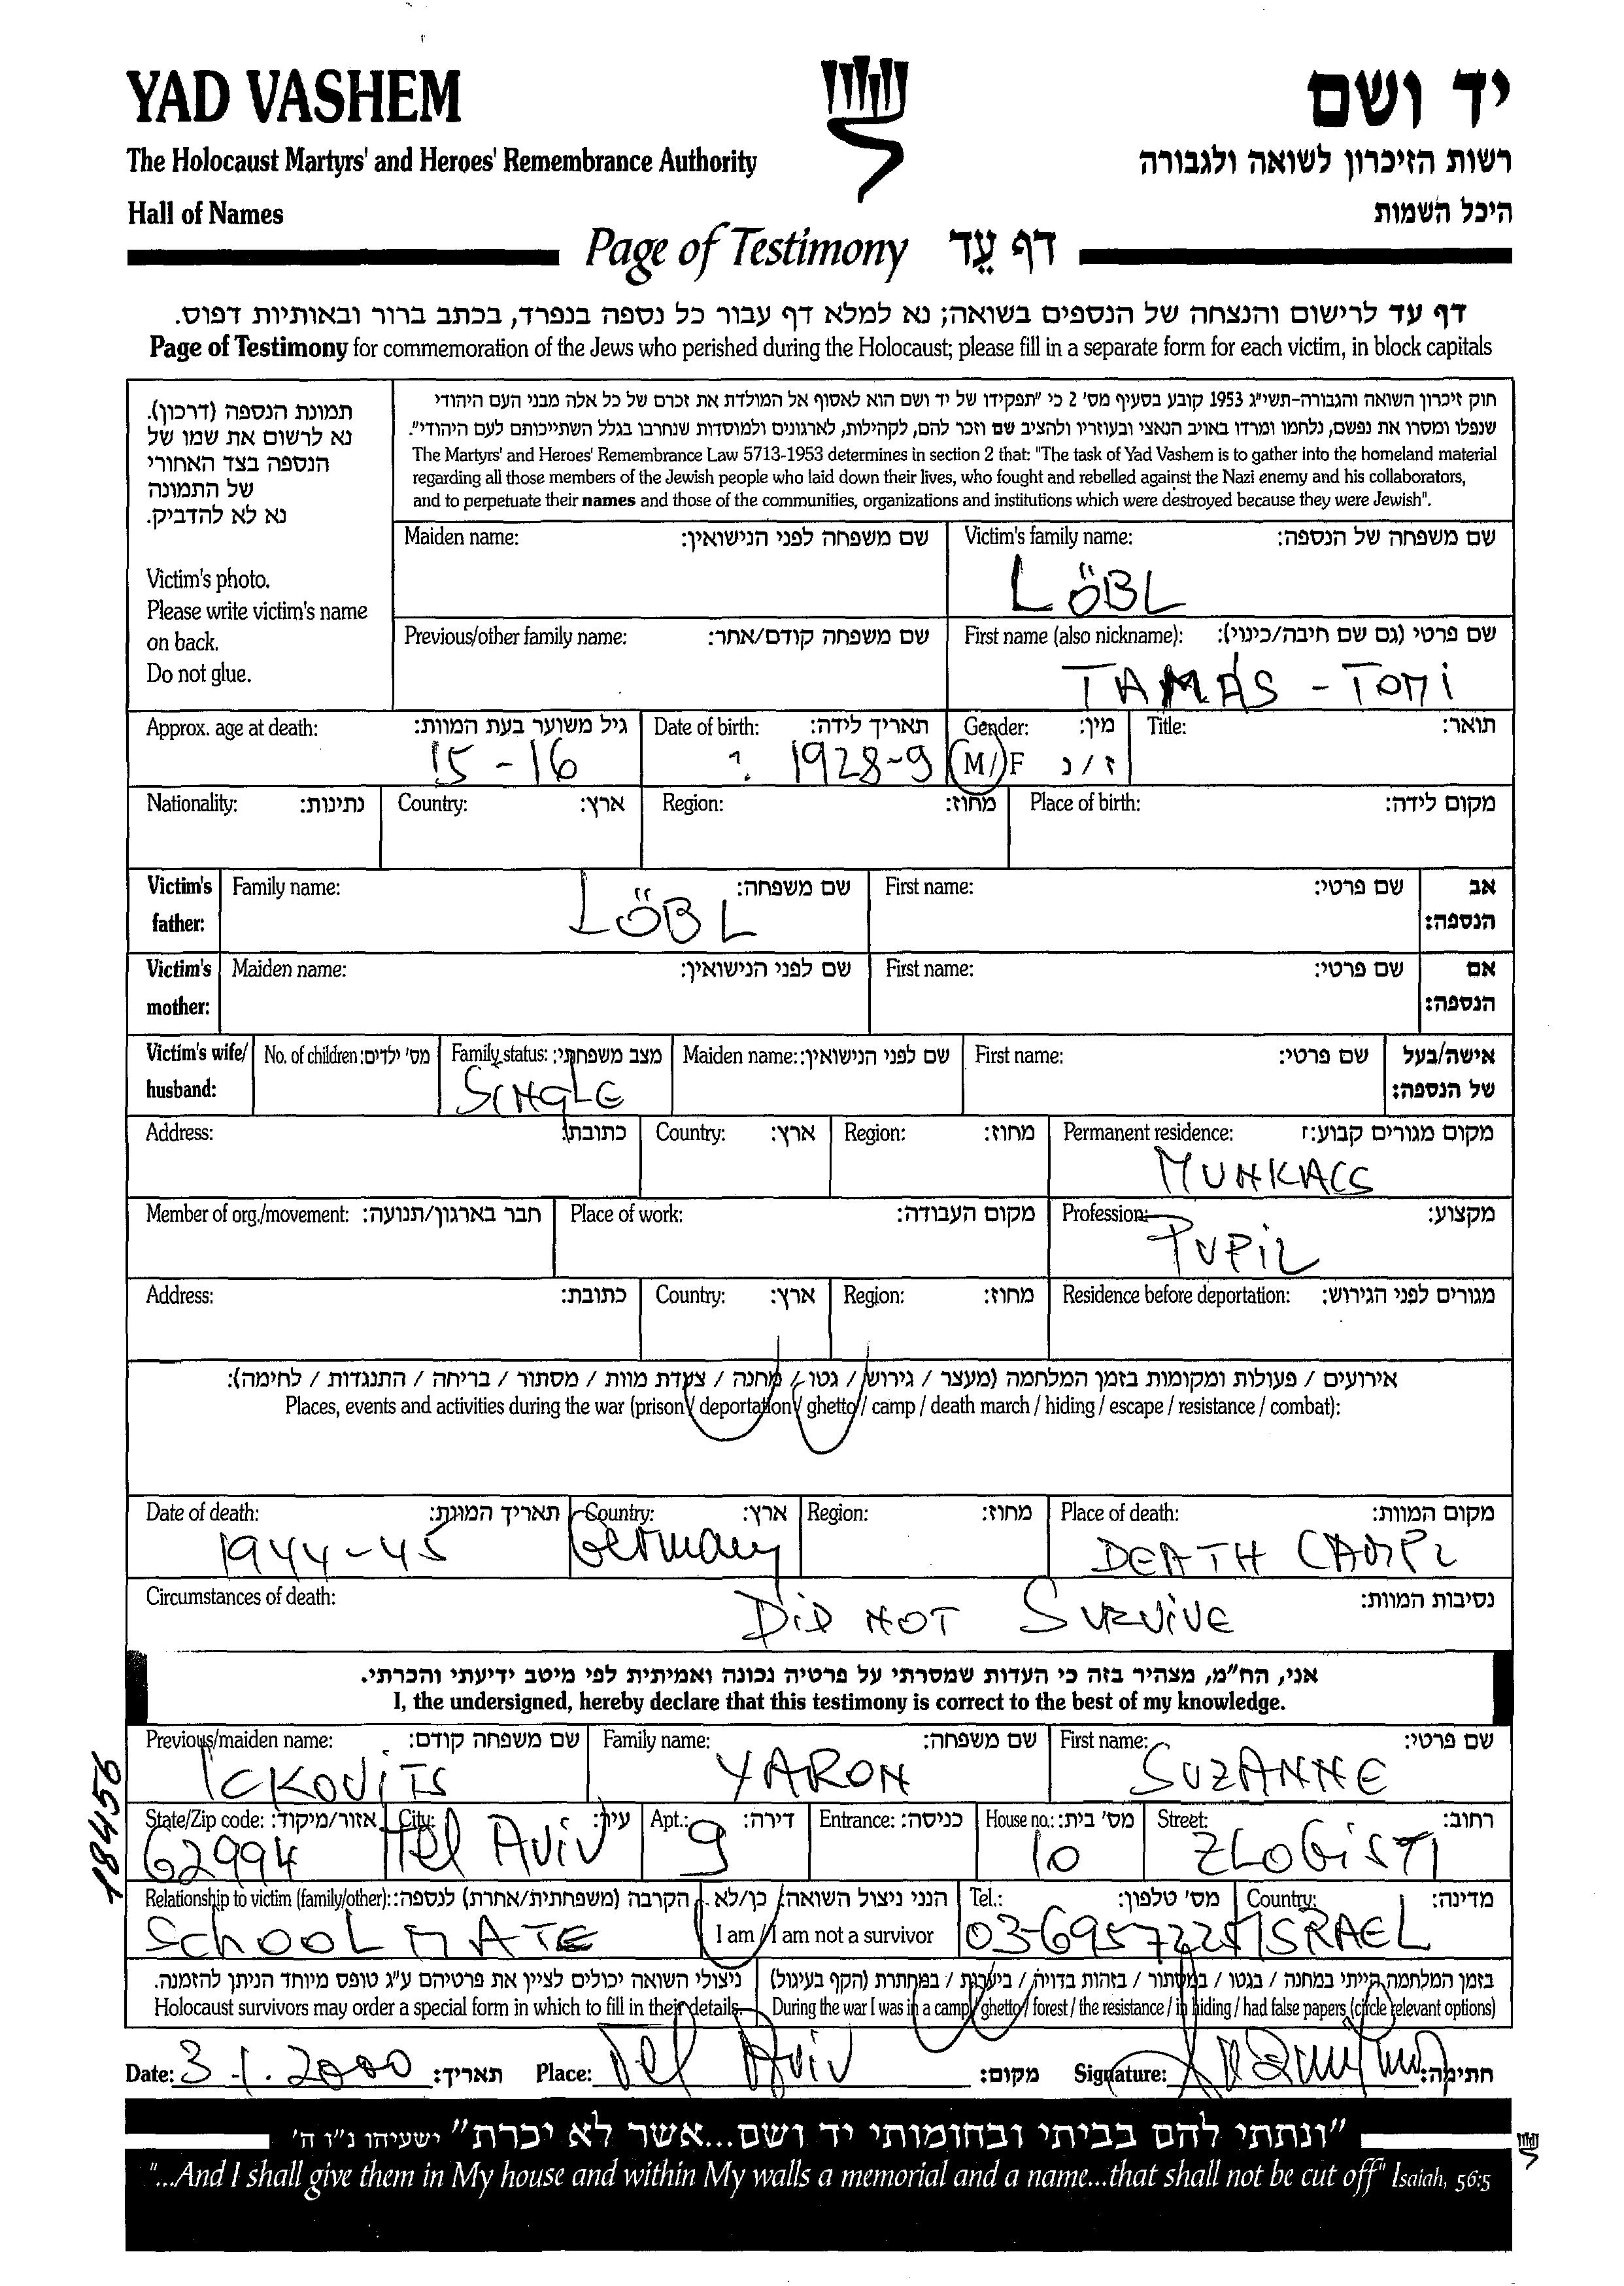 YAD VASHEM
יד ושם
The Holocaust Martyrs' and Heroes' Remembrance Authority
רשות הזיכרון לשואה ולגבורה
Hall of Names
היכל השמות
Page of Testimony דף עֵד
דף עד לרישום והנצחה של הנספים בשואה; נא למלא דף עבור כל נספה בנפרד, בכתב ברור ובאותיות דפוס.
Page of Testimony for commemoration of the Jews who perished during the Holocaust; please fill in a separate form for each victim, in block capitals
תמונת הנספה (דרכון).
נא לרשום את שמו של
הנספה בצד האחורי
של התמונה
נא לא להדביק.
Victim's photo.
Please write victim's name
on back.
Do not glue.
חוק זיכרון השואה והגבורה-תשי"ג 1953 קובע בסעיף מס' 2 כי "תפקידו של יד ושם הוא לאסוף אל המולדת את זכרם של כל אלה מבני העם היהודי
שנפלו ומסרו את נפשם, נלחמו ומרדו באויב הנאצי ובעוזריו ולהציב שם וזכר להם, לקהילות, לארגונים ולמוסדות שנחרבו בגלל השתייכותם לעם היהודי".
The Martyrs' and Heroes' Remembrance Law 5713-1953 determines in section 2 that: "The task of Yad Vashem is to gather into the homeland material
regarding all those members of the Jewish people who laid down their lives, who fought and rebelled against the Nazi enemy and his collaborators,
and to perpetuate their names and those of the communities, organizations and institutions which were destroyed because they were Jewish".
Maiden name: שם משפחה לפני הנישואין:
Victim's family name: שם משפחה של הנספה:
LÖBL
Previous/other family name: שם משפחה קודם/אחר:
First name (also nickname): שם פרטי (גם שם חיבה/כינוי):
TAMÁS - TOMI
Approx. age at death: גיל משוער בעת המוות:
15 - 16
Date of birth: תאריך לידה:
? 1928-9
Gender: מין:
M/F ז/נ
Title: תואר:
Nationality: נתינות:
Country: ארץ:
Region: מחוז:
Place of birth: מקום לידה:
Victim's father:
Family name: שם משפחה:
LÖBL
First name: שם פרטי:
אב הנספה:
Victim's mother:
Maiden name: שם לפני הנישואין:
First name: שם פרטי:
אם הנספה:
Victim's wife/ husband:
No. of children: מס' ילדים:
Family status: מצב משפחתי:
SINGLE
Maiden name: שם לפני הנישואין:
First name: שם פרטי:
אישה/בעל של הנספה:
Address: כתובת:
Country: ארץ:
Region: מחוז:
Permanent residence: מקום מגורים קבוע:
MUNKACS
Member of org./movement: חבר בארגון/תנועה:
Place of work: מקום העבודה:
Profession: מקצוע:
PUPIL
Address: כתובת:
Country: ארץ:
Region: מחוז:
Residence before deportation: מגורים לפני הגירוש:
אירועים / פעולות ומקומות בזמן המלחמה (מעצר / גירוש / גטו / מחנה / צעדת מוות / מסתור / בריחה / התנגדות / לחימה):
Places, events and activities during the war (prison / deportation / ghetto / camp / death march / hiding / escape / resistance / combat):
Date of death: תאריך המוות:
1944-45
Country: ארץ:
Germany
Region: מחוז:
Place of death: מקום המוות:
DEATH CAMP
Circumstances of death: נסיבות המוות:
DID NOT SURVIVE
אני, הח"מ, מצהיר בזה כי העדות שמסרתי על פרטיה נכונה ואמיתית לפי מיטב ידיעתי והכרתי.
I, the undersigned, hereby declare that this testimony is correct to the best of my knowledge.
Previous/maiden name: שם משפחה קודם:
ICKOVITS
Family name: שם משפחה:
YARON
First name: שם פרטי:
SUZANNE
184456
State/Zip code: אזור/מיקוד:
62994
City: עיר:
Tel Aviv
Apt.: דירה:
9
Entrance: כניסה:
House no.: מס' בית:
10
Street: רחוב:
ZLOGISTI
Relationship to victim (family/other): הקרבה (משפחתית/אחרת) לנספה:
SCHOOL MATE
הנני ניצול השואה: כן/לא
I am / I am not a survivor
Tel.: מס' טלפון:
03-6957225
Country: מדינה:
ISRAEL
ניצולי השואה יכולים לציין את פרטיהם ע"ג טופס מיוחד הניתן להזמנה.
Holocaust survivors may order a special form in which to fill in their details.
בזמן המלחמה הייתי במחנה / בגטו / במסתור / בזהות בדויה / ביערות / במחתרת (הקף בעיגול)
During the war I was in a camp / ghetto / forest / the resistance / in hiding / had false papers (circle relevant options)
Date: 3.1.2000 תאריך:
Place: Tel Aviv מקום:
Signature: חתימה:
"ונתתי להם בביתי ובחומותי יד ושם...אשר לא יכרת" ישעיהו נ"ו ה'
"...And I shall give them in My house and within My walls a memorial and a name...that shall not be cut off" Isaiah, 56:5